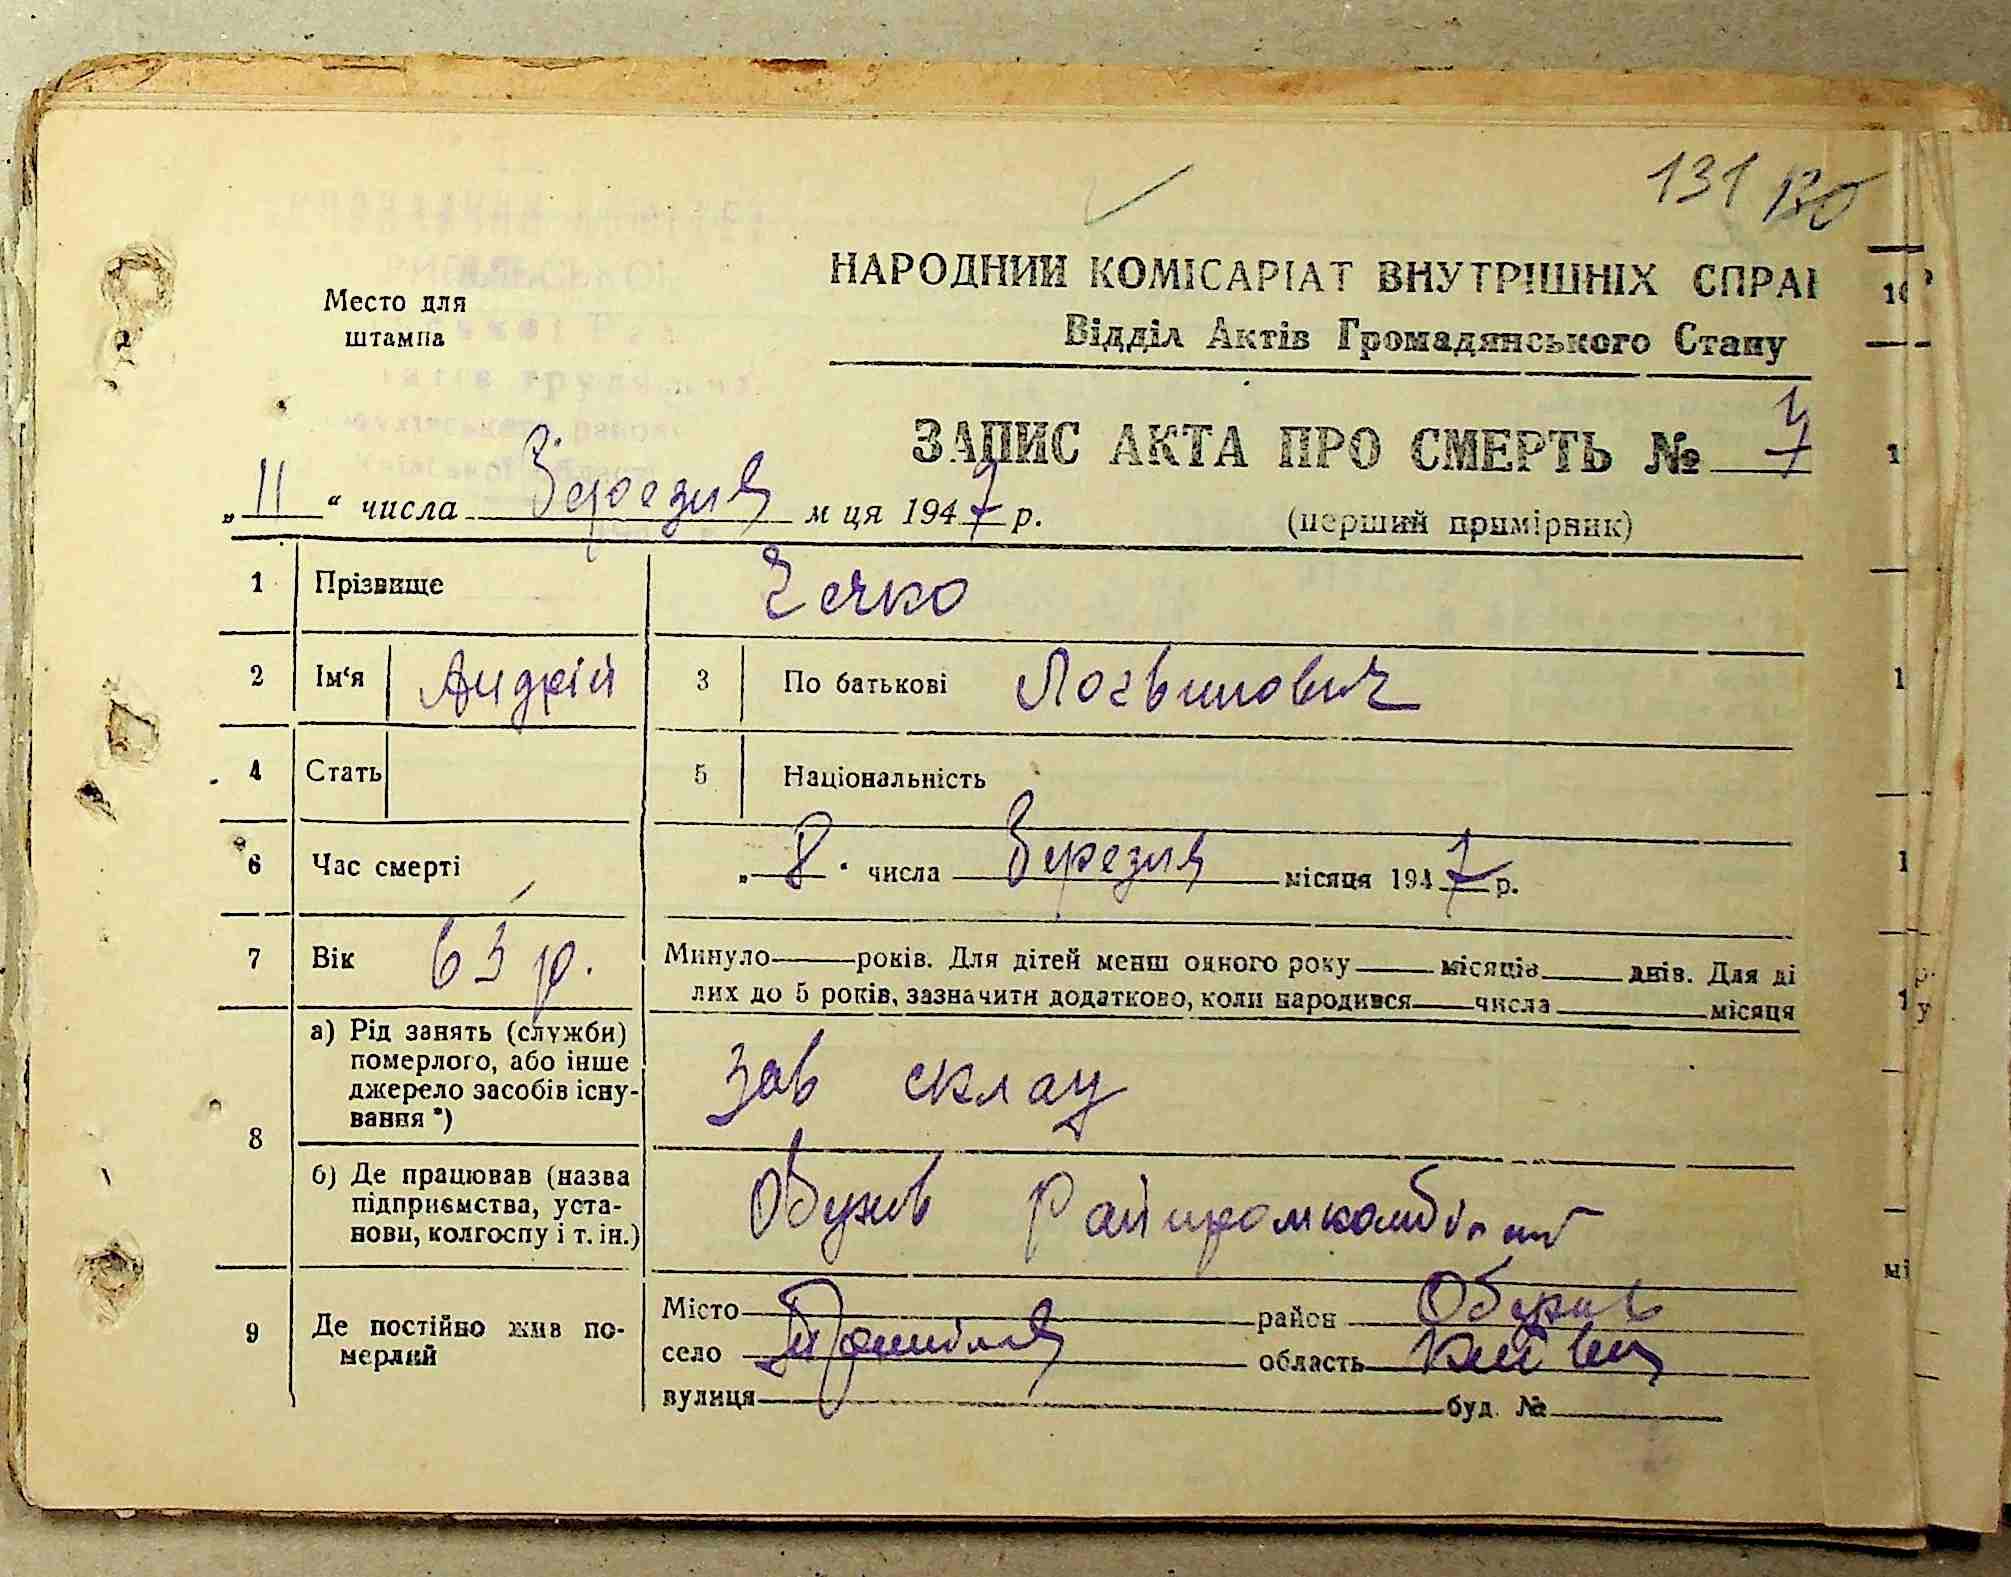 131 130
НАРОДНИЙ КОМІСАРІАТ ВНУТРІШНІХ СПРАВ
Место для штампа
Відділ Актів Громадянського Стану
ЗАПИС АКТА ПРО СМЕРТЬ № 7
„11“ числа Березня м ця 1947 р.
(перший примірник)
1 Прізвище Чечко
2 Ім‘я Андрій 3 По батькові Логвинович
4 Стать 5 Національність
6 Час смерті „8“ числа Березня місяця 1947 р.
7 Вік 63 р. Минуло років. Для дітей менш одного року місяців днів. Для ді
лих до 5 років, зазначити додатково, коли народився числа місяця
8 а) Рід занять (служби)
померлого, або інше
джерело засобів існу-
вання *)
Зав складу
б) Де працював (назва
підприємства, уста-
нови, колгоспу і т. ін.)
Обухів Райпромкомбінат
9 Де постійно жив по-
мерлий
Місто район Обухів
село область Київськ
вулиця буд. №